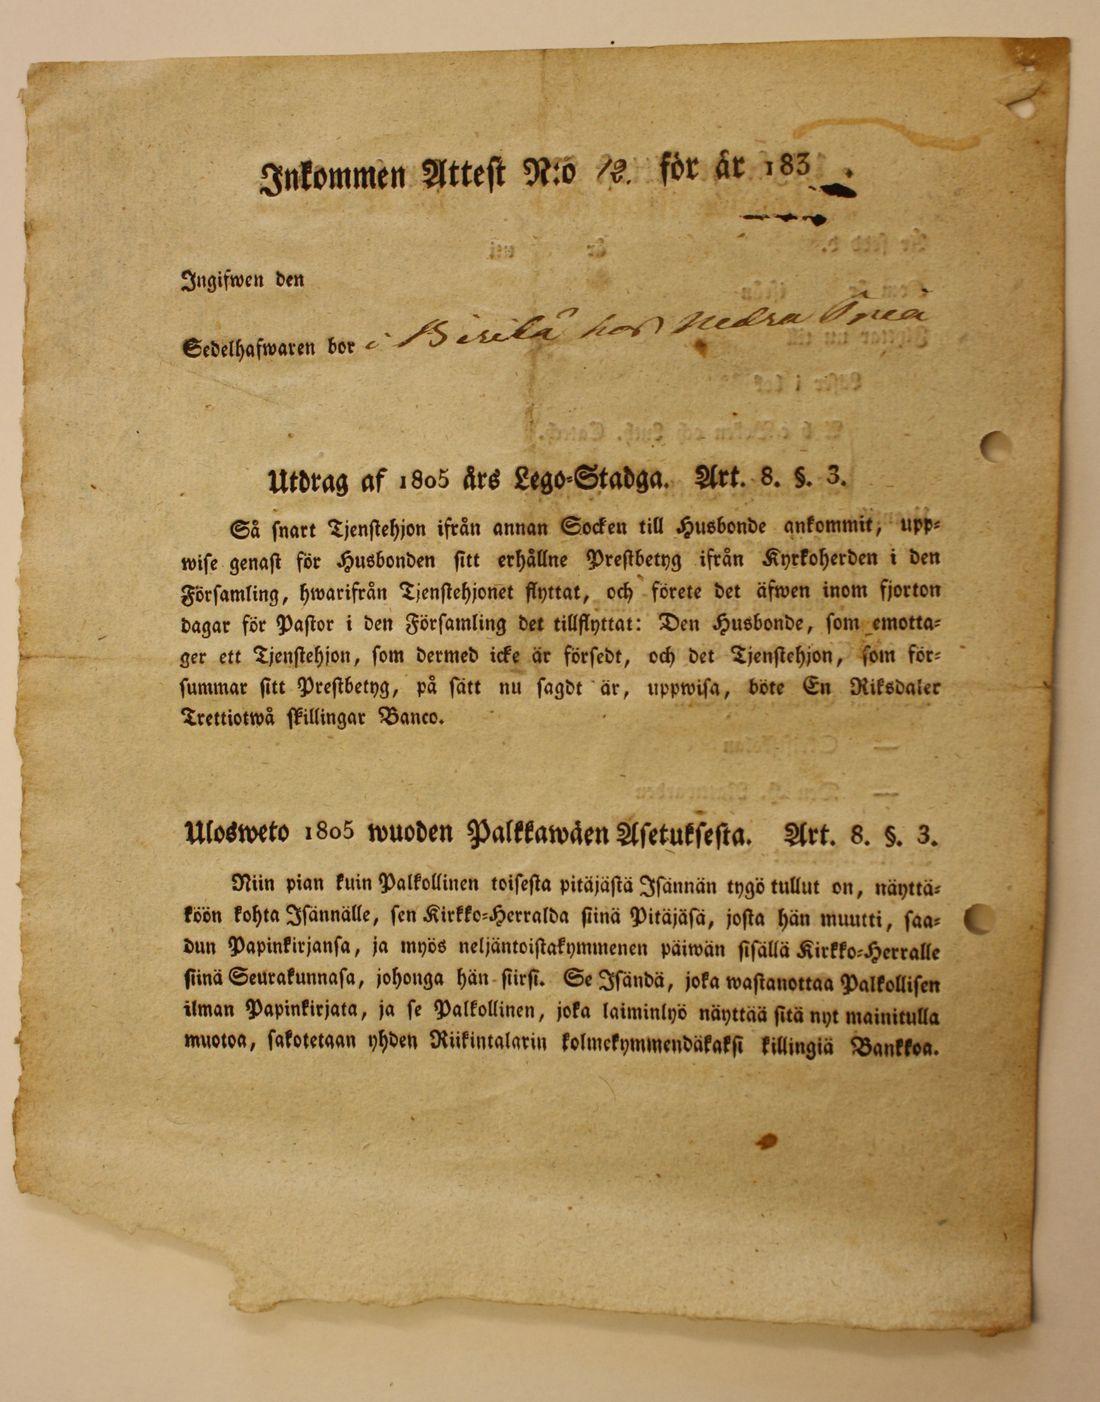 Inkommen Attest N:o 12. för år 183
Ingifwen den
Sedelhafwaren bor i hos Nedra
Utdrag af 1805 års Lego-Stadga. Art. 8. §. 3.
Så snart Tjenstehjon ifrån annan Socken till Husbonde ankommit, upp-
wise genast för Husbonden sitt erhållne Prestbetyg ifrån Kyrkoherden i den
Församling, hwarifrån Tjenstehjonet flyttat, och förete det äfwen inom fjorton
dagar för Pastor i den Församling det tillflyttat: Den Husbonde, som emotta-
ger ett Tjenstehjon, som dermed icke är försedt, och det Tjenstehjon, som för-
summar sitt Prestbetyg, på sätt nu sagdt är, uppwisa, böte En Riksdaler
Trettiotwå skillingar Banco.
Ulosweto 1805 wuoden Palkkawäen Asetuksesta. Art. 8. §. 3.
Niin pian kuin Palkollinen toisesta pitäjästä Isännän tygö tullut on, näyttä-
köön kohta Isännälle, sen Kirkko-Herralda siinä Pitäjäsä, josta hän muutti, saa-
dun Papinkirjansa, ja myös neljäntoistakymmenen päiwän sisällä Kirkko-Herralle
siinä Seurakunnasa, johonga hän siirsi. Se Isändä, joka wastanottaa Palkollisen
ilman Papinkirjata, ja se Palkollinen, joka laiminlyö näyttää sitä nyt mainitulla
muotoa, sakotetaan yhden Riikintalarin kolmekymmendäkaksi killingiä Bankkoa.